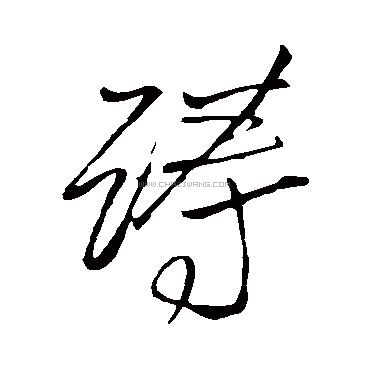 踌
WWW.CHAZIWANG.COM